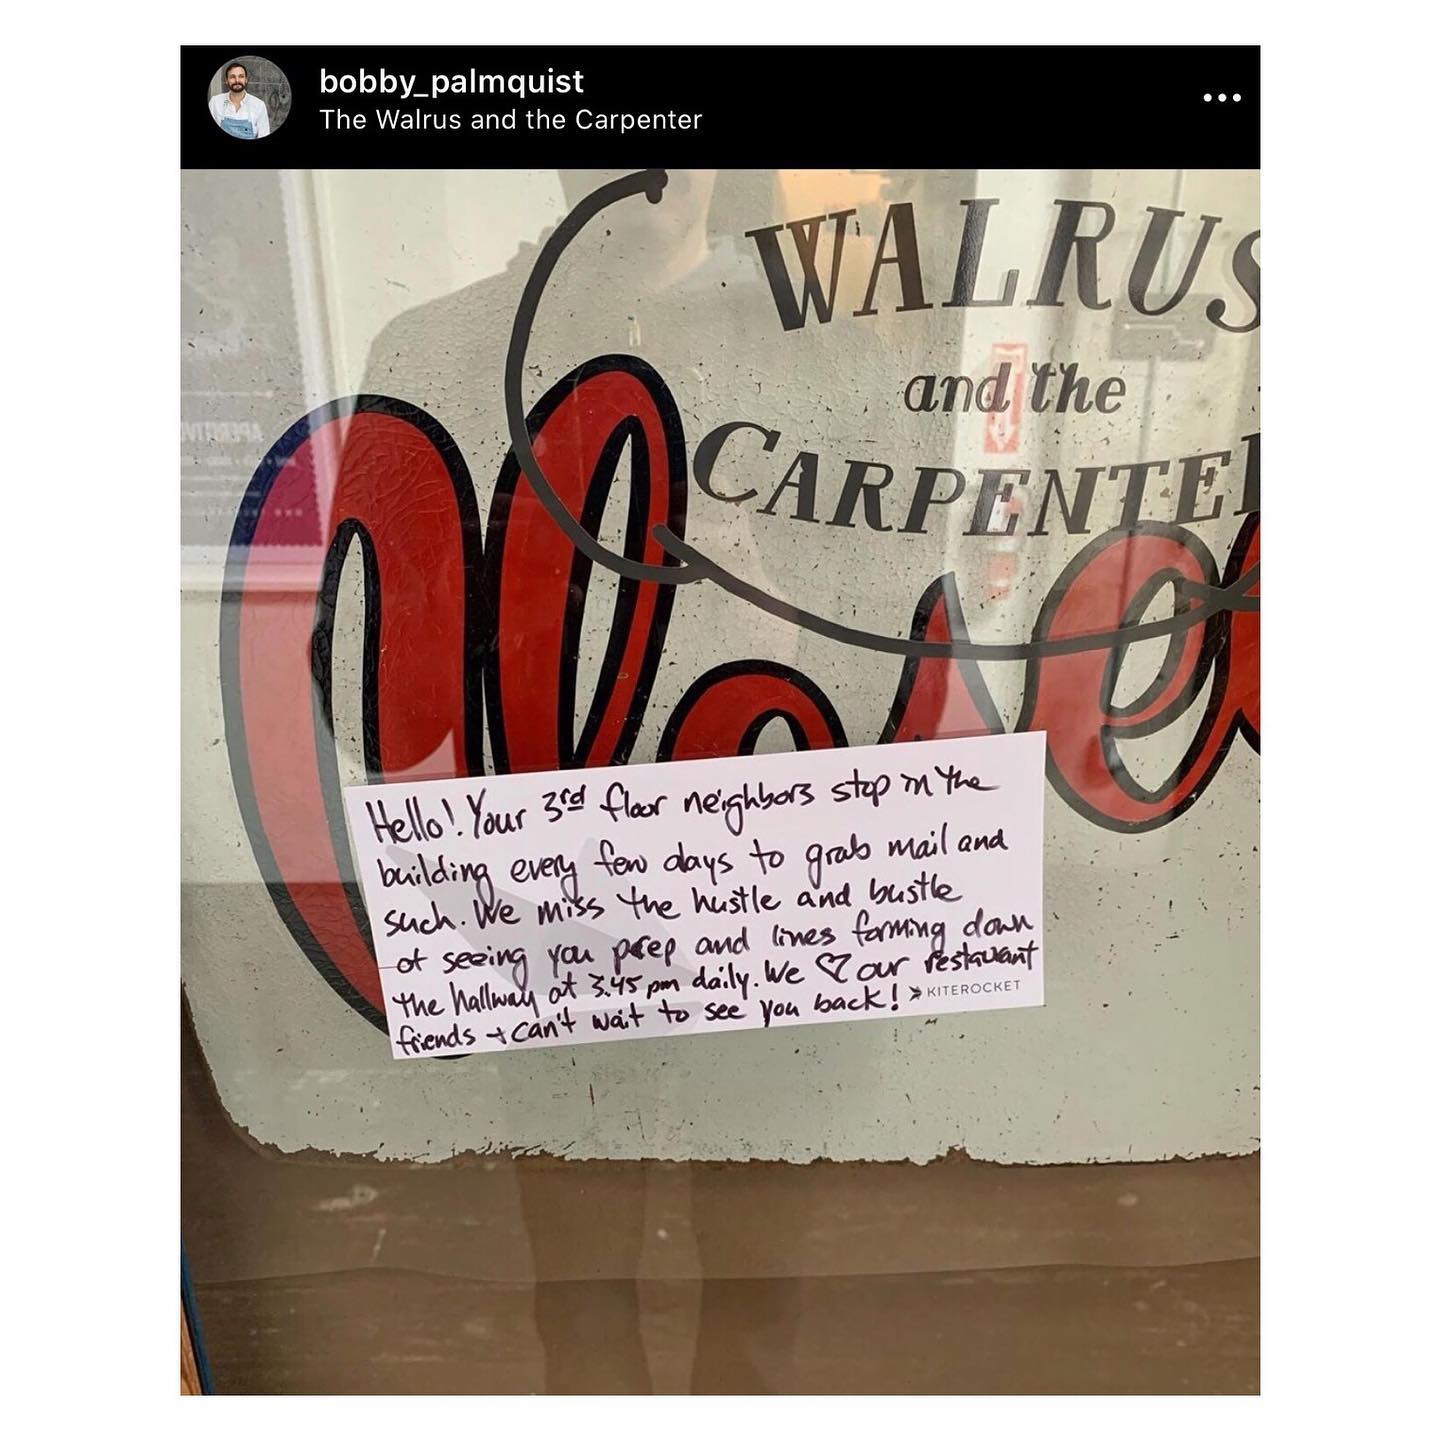 bobby_palmquist
The Walrus and the Carpenter
WALRUS
and the
CARPENTER
Closed
APERITIVE
Hello! Your 3rd floor neighbors stop in the
building every few days to grab mail and
such. We miss the hustle and bustle
of seeing you prep and lines forming down
the hallway at 3:45 pm daily. We ♡ our restaurant
friends + can't wait to see you back!
KITEROCKET